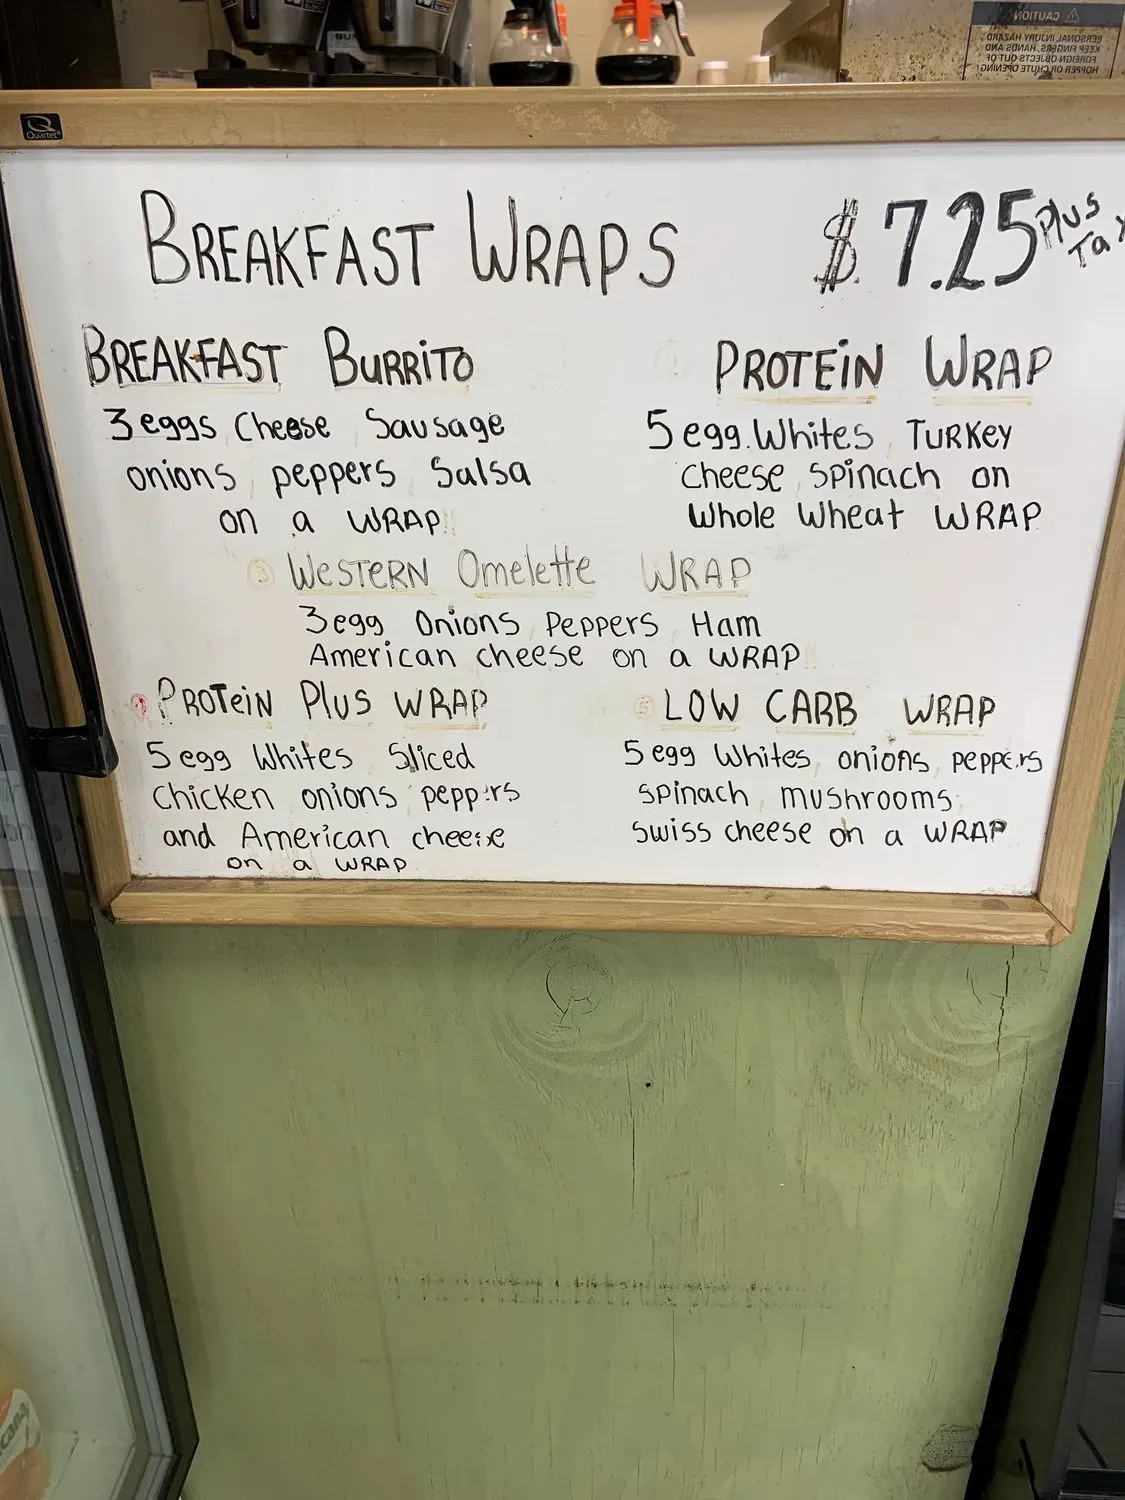 CAUTION
PERSONAL INJURY HAZARD
KEEP FINGERS, HANDS, AND
FOREIGN OBJECTS OUT OF
HOPPER OR CHUTE OPENING!
Quartet
BREAKFAST WRAPS $7.25 Plus Tax
BREAKFAST BURRITO
3 eggs Cheese Sausage
onions peppers Salsa
on a WRAP
PROTEIN WRAP
5 egg Whites, TURKey
cheese, spinach on
Whole Wheat WRAP
3 WeSTERN Omelette WRAP
3 egg Onions Peppers Ham
American cheese on a WRAP
PROTeiN Plus WRAP
5 egg Whites Sliced
Chicken onions peppers
and American cheese
on a WRAP
5 LOW CARB WRAP
5 egg Whites, onions, peppers
spinach, mushrooms
swiss cheese on a WRAP